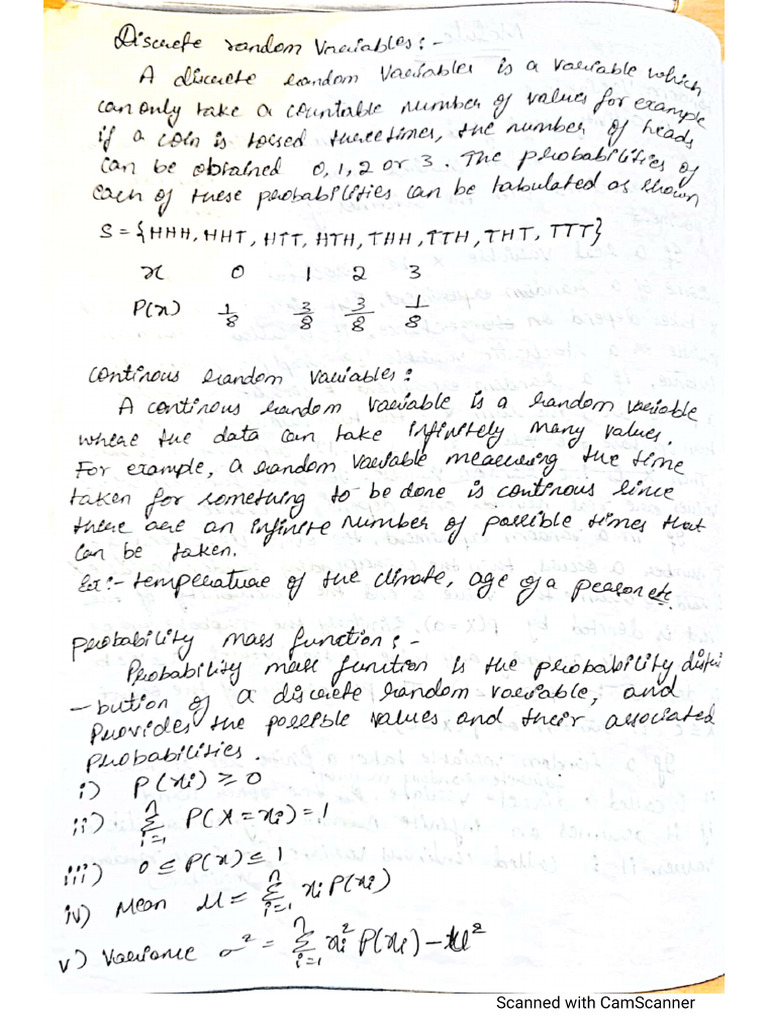 Discrete random Variables:-
A discrete random Variables is a variable which
can only take a countable number of values for example
if a coin is tossed three times, the number of heads
can be obtained 0, 1, 2 or 3. The probabilities of
each of these probabilities can be tabulated as shown
S = {HHH, HHT, HTT, HTH, THH, TTH, THT, TTT}
x 0 1 2 3
P(x) 1/8 3/8 3/8 1/8
continous random variables:
A continous random variable is a random variable
where the data can take infinitely many values.
For example, a random variable measuring the time
taken for something to be done is continous since
there are an infinite number of possible times that
can be taken.
Ex:- temperature of the climate, age of a person etc.
probability mass function:-
Probability mass function is the probability distri
-bution of a discrete random variable, and
provides the possible values and their associated
probabilities.
i) P(xi) ≥ 0
ii) n∑i=1 P(X = xi) = 1
iii) 0 ≤ P(x) ≤ 1
iv) Mean μ = n∑i=1 xi P(xi)
v) Variance σ² = n∑i=1 xi² P(xi) - μ²
Scanned with CamScanner